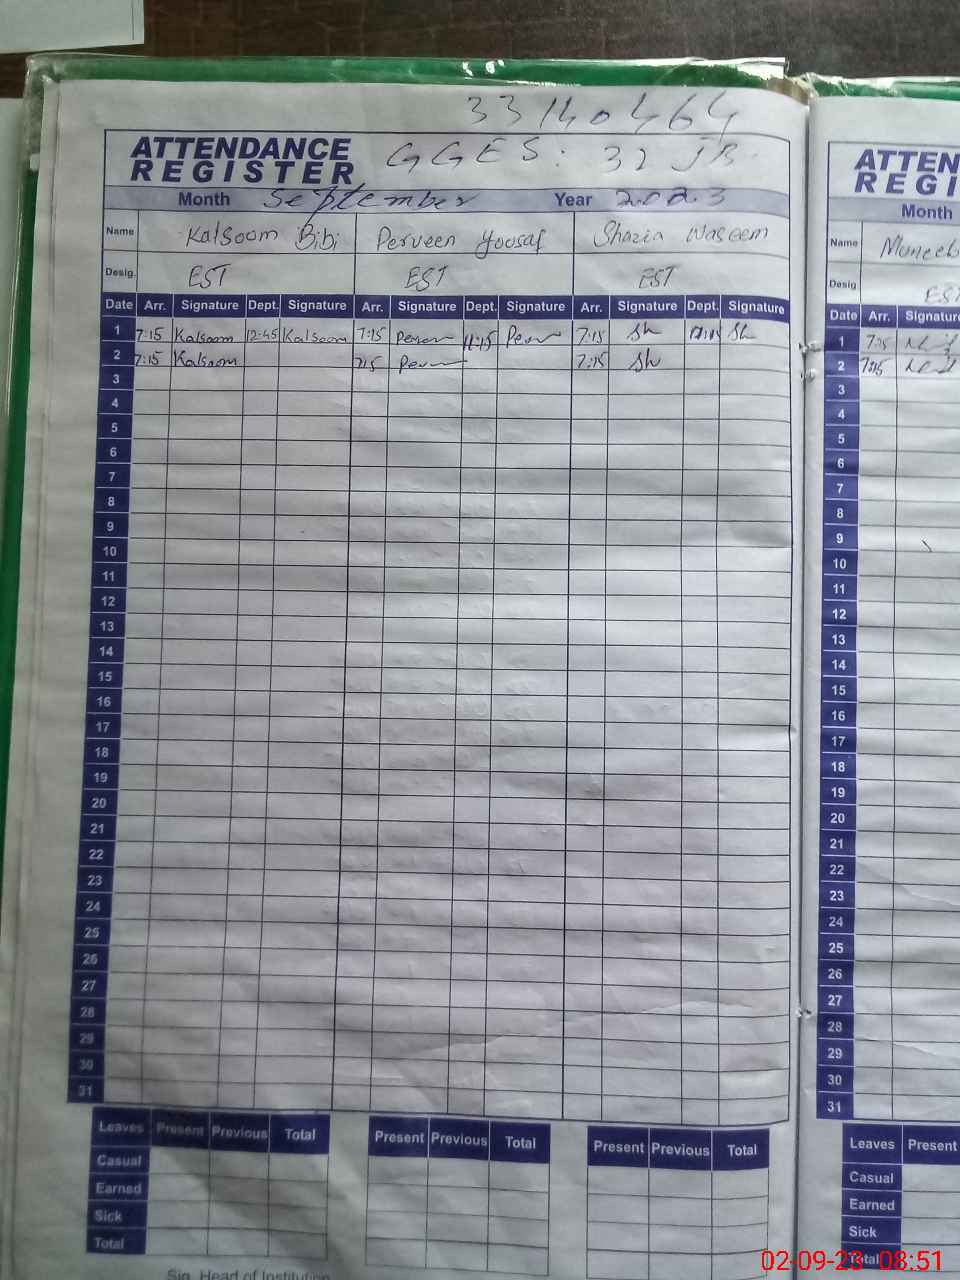 33140464
ATTENDANCE REGISTER GGES: 32 JB
Month September Year 2023
Name Kalsoom Bibi Perveen Yousaf Shazia Waseem
Desig. EST EST EST
Date Arr. Signature Dept. Signature Arr. Signature Dept. Signature Arr. Signature Dept. Signature
1 7:15 Kalsoom 12:45 Kalsoom 7:15 7:15 Sh Sh
2 7:15 Kalsoom 7:15 7:15 Sh
3
4
5
6
7
8
9
10
11
12
13
14
15
16
17
18
19
20
21
22
23
24
25
26
27
28
29
30
31
Leaves Present Previous Total Present Previous Total Present Previous Total
Casual
Earned
Sick
Total
Sig. Head of Institution
ATTEN
REGI
Month
Name Muneeb
Desig EST
Date Arr. Signature
1 7:15
2 7:15
3
4
5
6
7
8
9
10
11
12
13
14
15
16
17
18
19
20
21
22
23
24
25
26
27
28
29
30
31
Leaves Present
Casual
Earned
Sick
Total
02-09-23 08:51